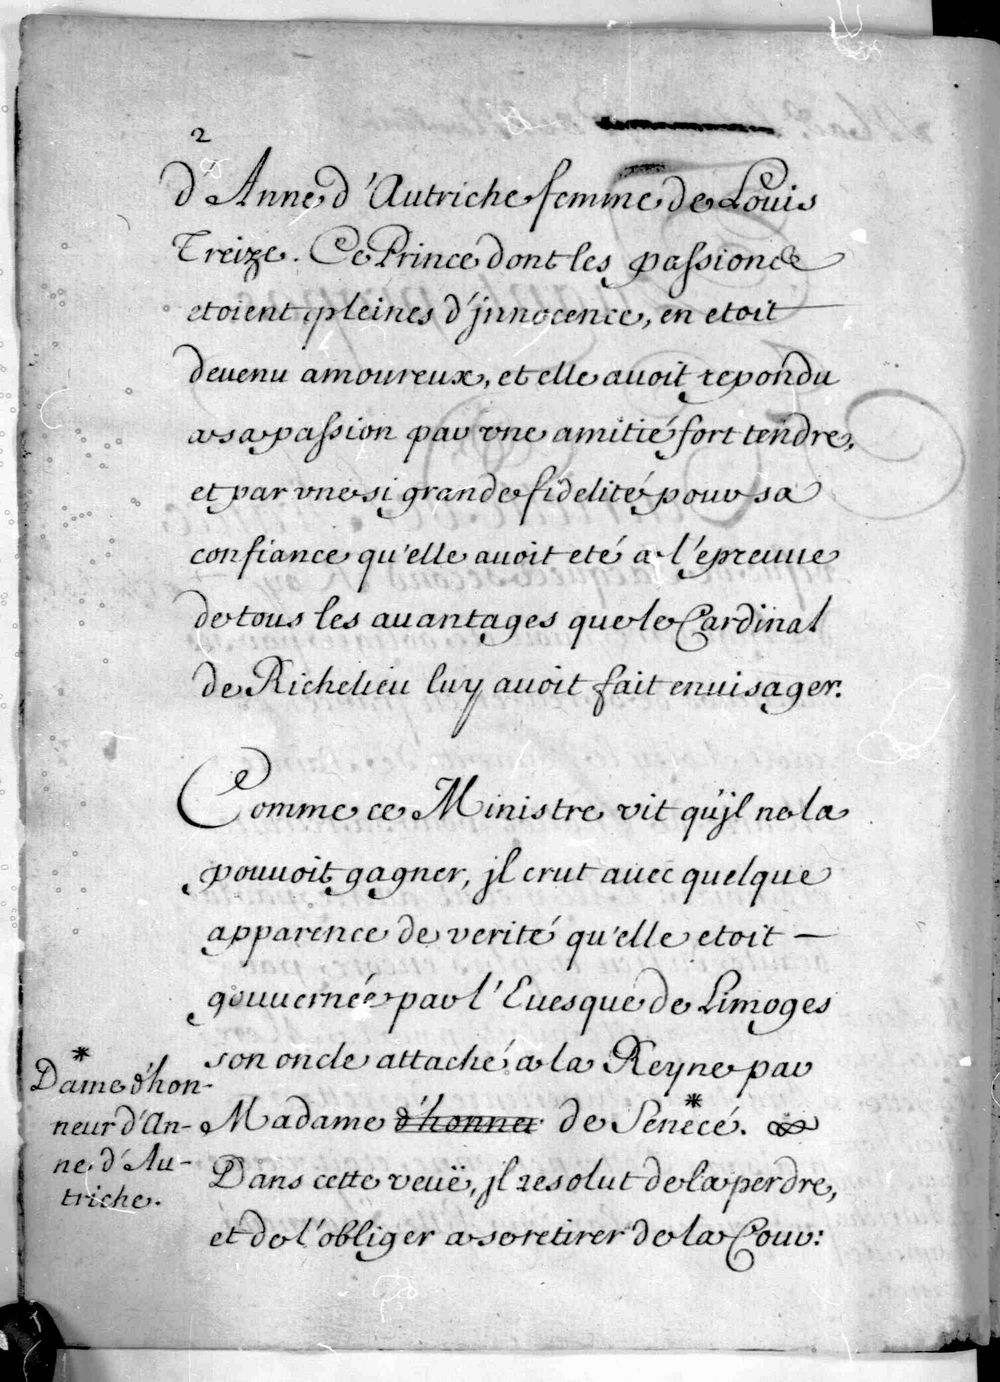 2
d'Anne d'Autriche femme de Louis
Treize. Ce Prince dont les passions
etoient pleines d'jnnocence, en etoit
devenu amoureux, et elle avoit repondu
a sa passion par vne amitié fort tendre,
et par vne si grande fidelité pour sa
confiance qu'elle avoit eté a l'epreuue
de tous les auantages que le Cardinal
de Richelieu luy avoit fait enuisager.
Comme ce Ministre vit qu'jl ne la
pouuoit gagner, jl crut avec quelque
apparence de verité qu'elle etoit —
gouuernée par l'Euesque de Limoges
son oncle attaché a la Reyne par
Madame d'honner de Senecé.*
Dans cette veuë, jl resolut de la perdre,
et de l'obliger a se retirer de la Cour:
*
Dame d'hon-
neur d'An-
ne d'Au-
triche.